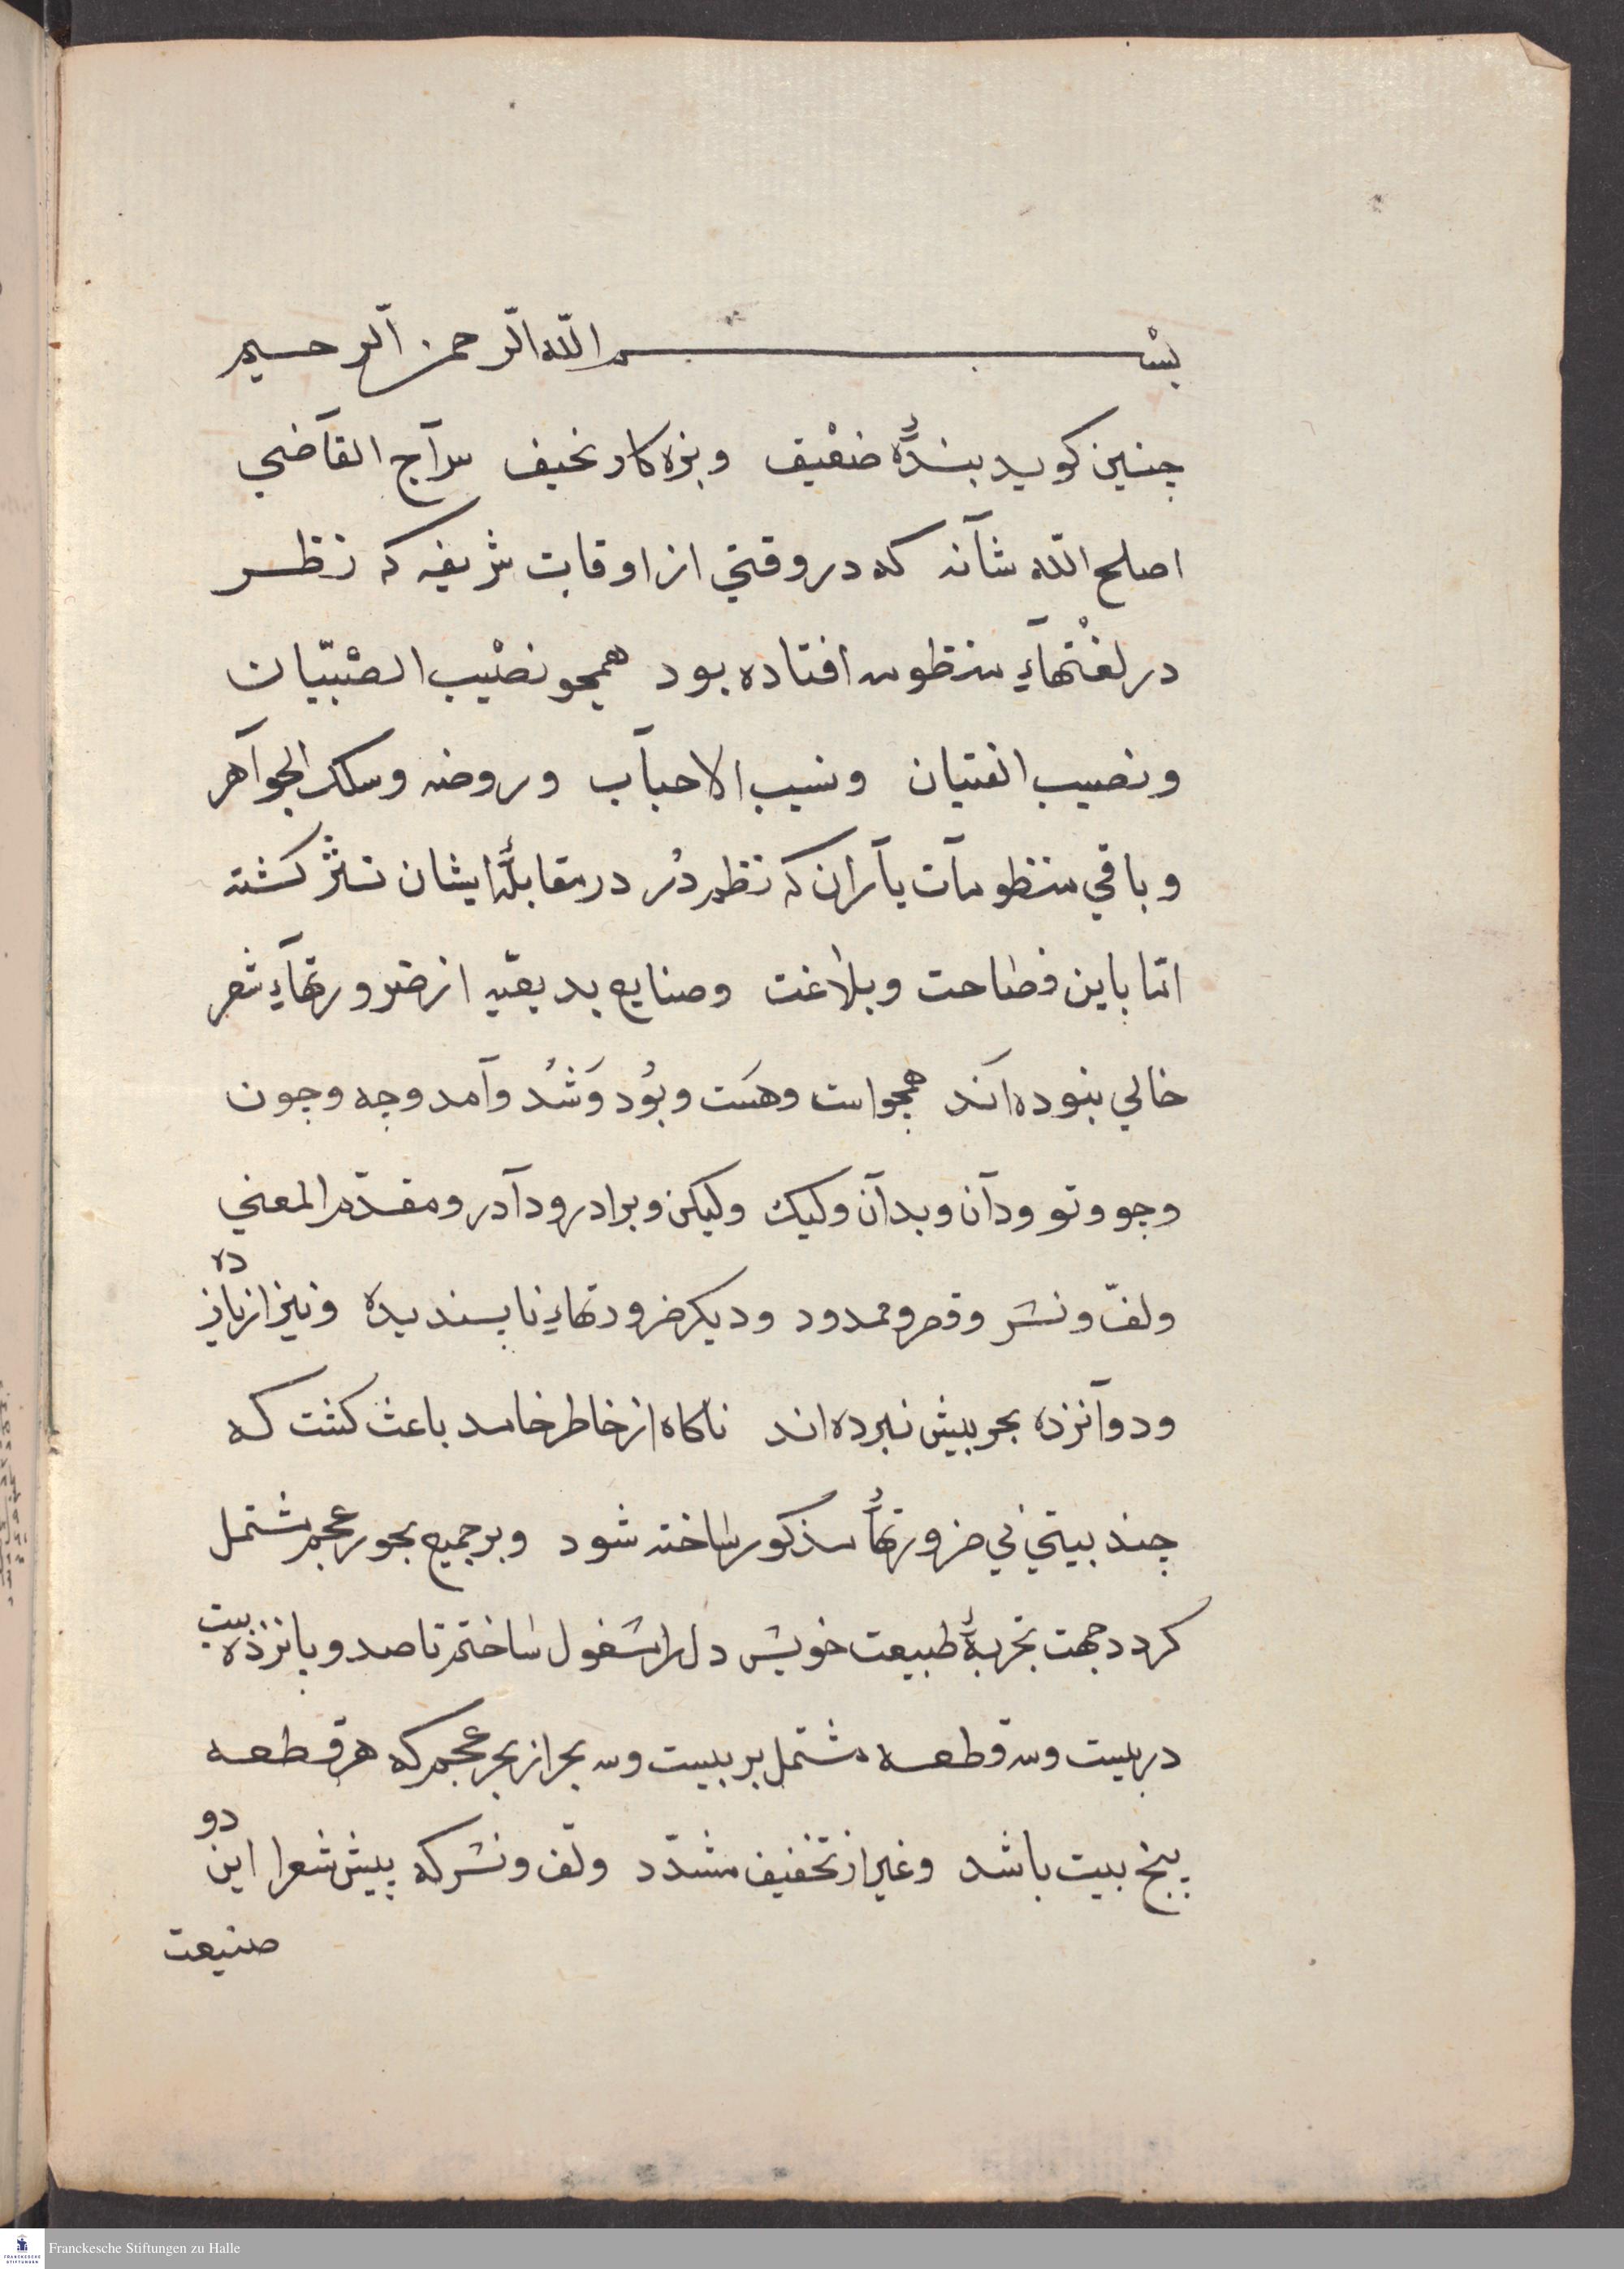 بسم الله الرحمن الرحيم
جنين كويد بندۀ ضعيف وبزه كار نحيف سراج القاضي
اصلح الله شانه كه در وقتي از اوقات شريفه كه نظر
در لغتهاء منظومه افتاده بود همجو نصيب الصبيان
ونصيب الفتيان ونسيب الاحباب وروضه وسلك الجواهر
وباقي منظومات ياران كه نظم دُر در مقابلۀ ايشان نثر كشته
امّا باين فصاحت وبلاغت وصنايع بديعيه از ضرورتهاء شعر
خالي بنوده اند همجو است وهست وبُود وشُد وآمد وجه وجون
وجو وتو ودآن وبدآن وليك وليكن وبرادر ودآدر ومقدّم المعني
ولفّ ونشر وقصر وممدود وديكر ضرورتهاء نابسنديده ونيز از يازده
ودوآنزده بحر بيش نبرده اند ناكاه از خاطر خامد باعث كشت كه
جند بيتي بي ضرورتهاء مذكور ساخته شود وبر جميع بحور عجم مشتمل
كردد جهت تجربۀ طبيعت خويش دل را مشغول ساختم تا صد وپانزده بيت
در بيست وسه قطعه مشتمل بر بيست وسه بحر از بحر عجم كه هر قطعه
پنج بيت باشد وغير از تخفيف مشدّد ولّف ونشر كه پيش شعرا اين دو
صنيعت
Franckesche Stiftungen zu Halle